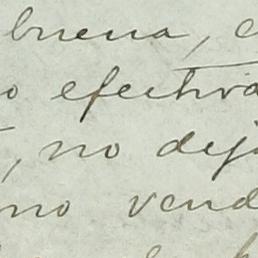 buena,
o efectiva
, no dej
no vend